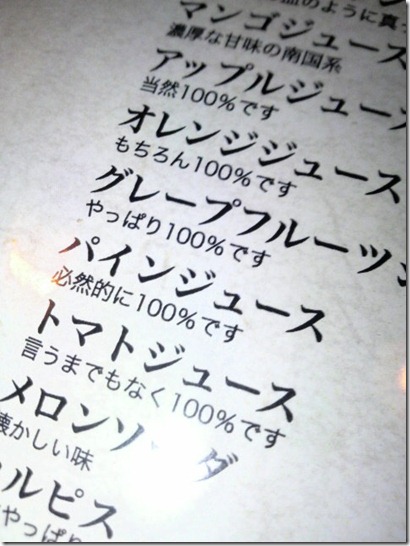 のように真っ
マンゴジュース
濃厚な甘味の南国系
アップルジュース
当然100%です
オレンジジュース
もちろん100%です
グレープフルーツジ
やっぱり100%です
パインジュース
必然的に100%です
トマトジュース
言うまでもなく100%です
メロンソーダ
懐かしい味
ルピス
やっぱり